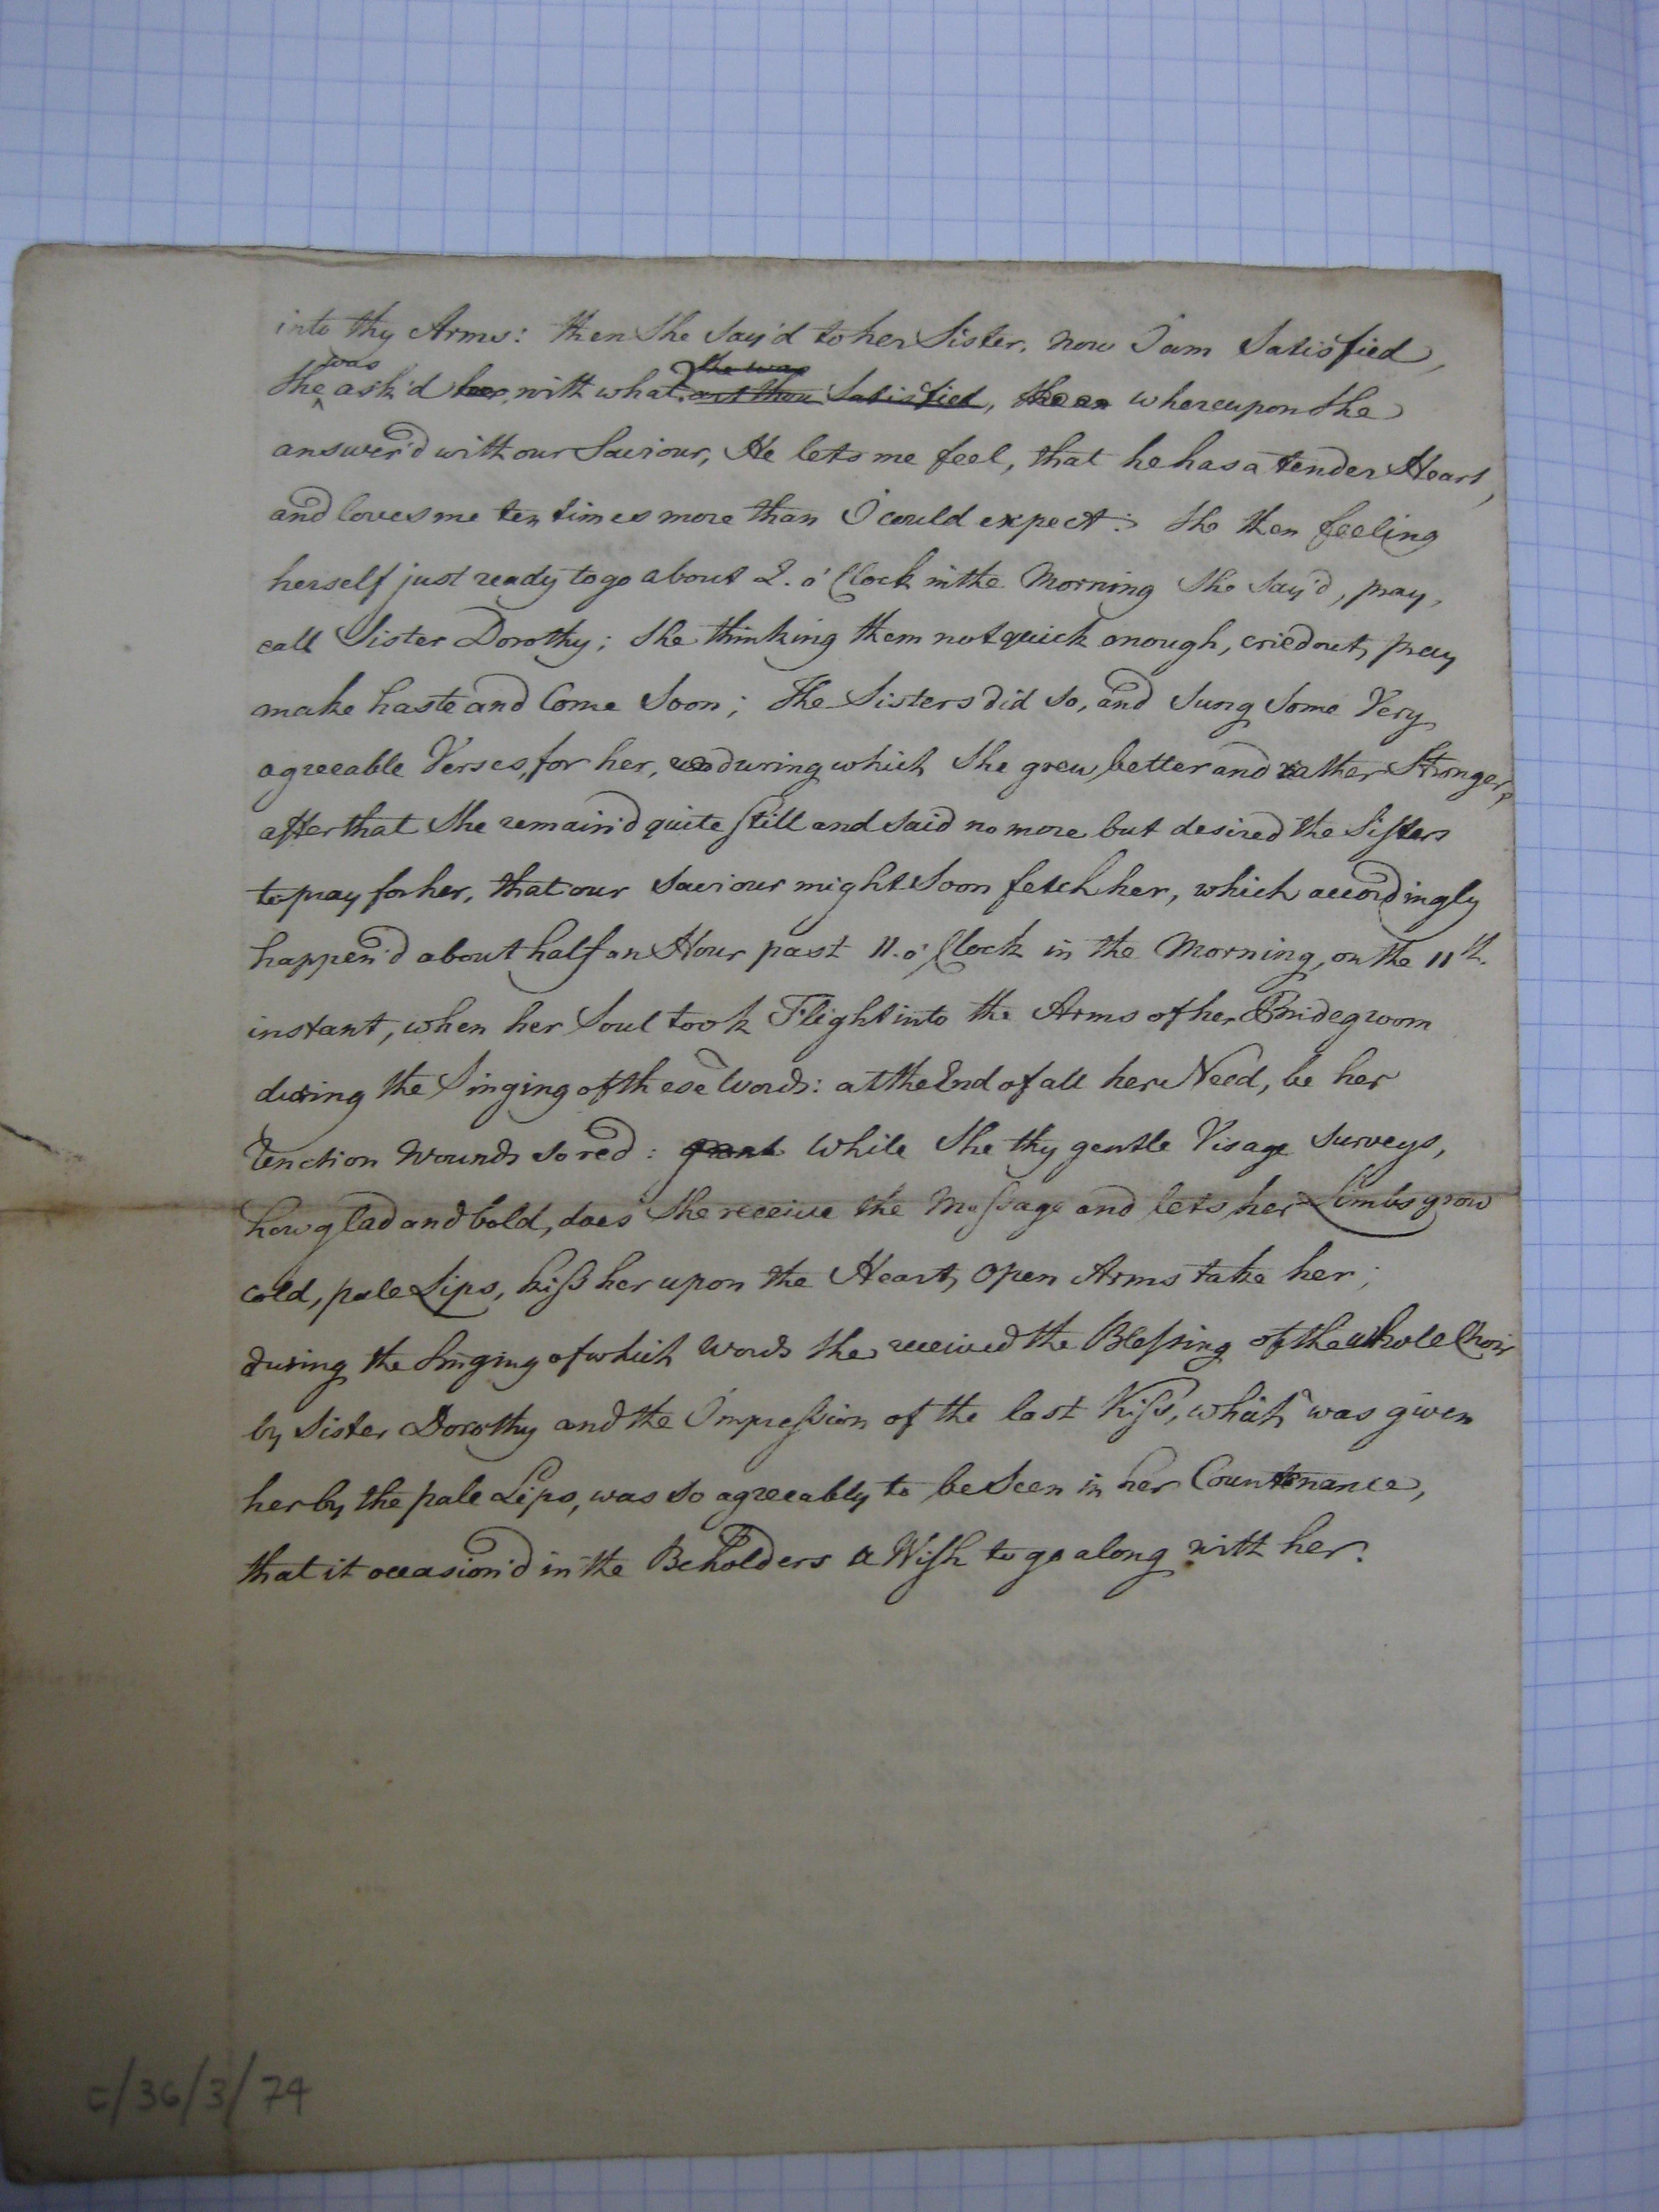 into thy Arms: then She Say'd to her Sister, now I am Satisfied,
was the was
She ask'd her, with what? art thou Satisfied, whereupon She
answer'd with our Saviour, He lets me feel, that he has a tender Heart,
and loves me ten times more than I could expect: She then feeling
herself just ready to go about 2. o'Clock in the Morning She Say'd, pray,
call Sister Dorothy; She thinking them not quick enough, cried out, pray
make haste and Come Soon; The Sisters did So, and Sung Some Very
agreeable Verses, for her, during which She grew better and rather Stronger,
after that She remain'd quite Still and Said no more but desired the Sisters
to pray for her, that our Saviour might Soon fetch her, which accordingly
happen'd about half an Hour past 11. o'Clock in the Morning, on the 11th.
instant, when her Soul took Flight into the Arms of her Bridegroom
during the Singing of these Words: at the End of all her Need, be her
Unction Wounds So red: While She thy gentle Visage Surveys,
how glad and bold, does She receive the Message and lets her Limbs grow
cold, pale Lips, kiss her upon the Heart, Open Arms take her;
during the Singing of which Words She received the Blessing of the whole Choir
by Sister Dorothy and the Impression of the last Kiss, which was given
her by the pale Lips, was So agreeably to be Seen in her Countenance,
that it occasion'd in the Beholders a Wish to go along with her.
C/36/3/74